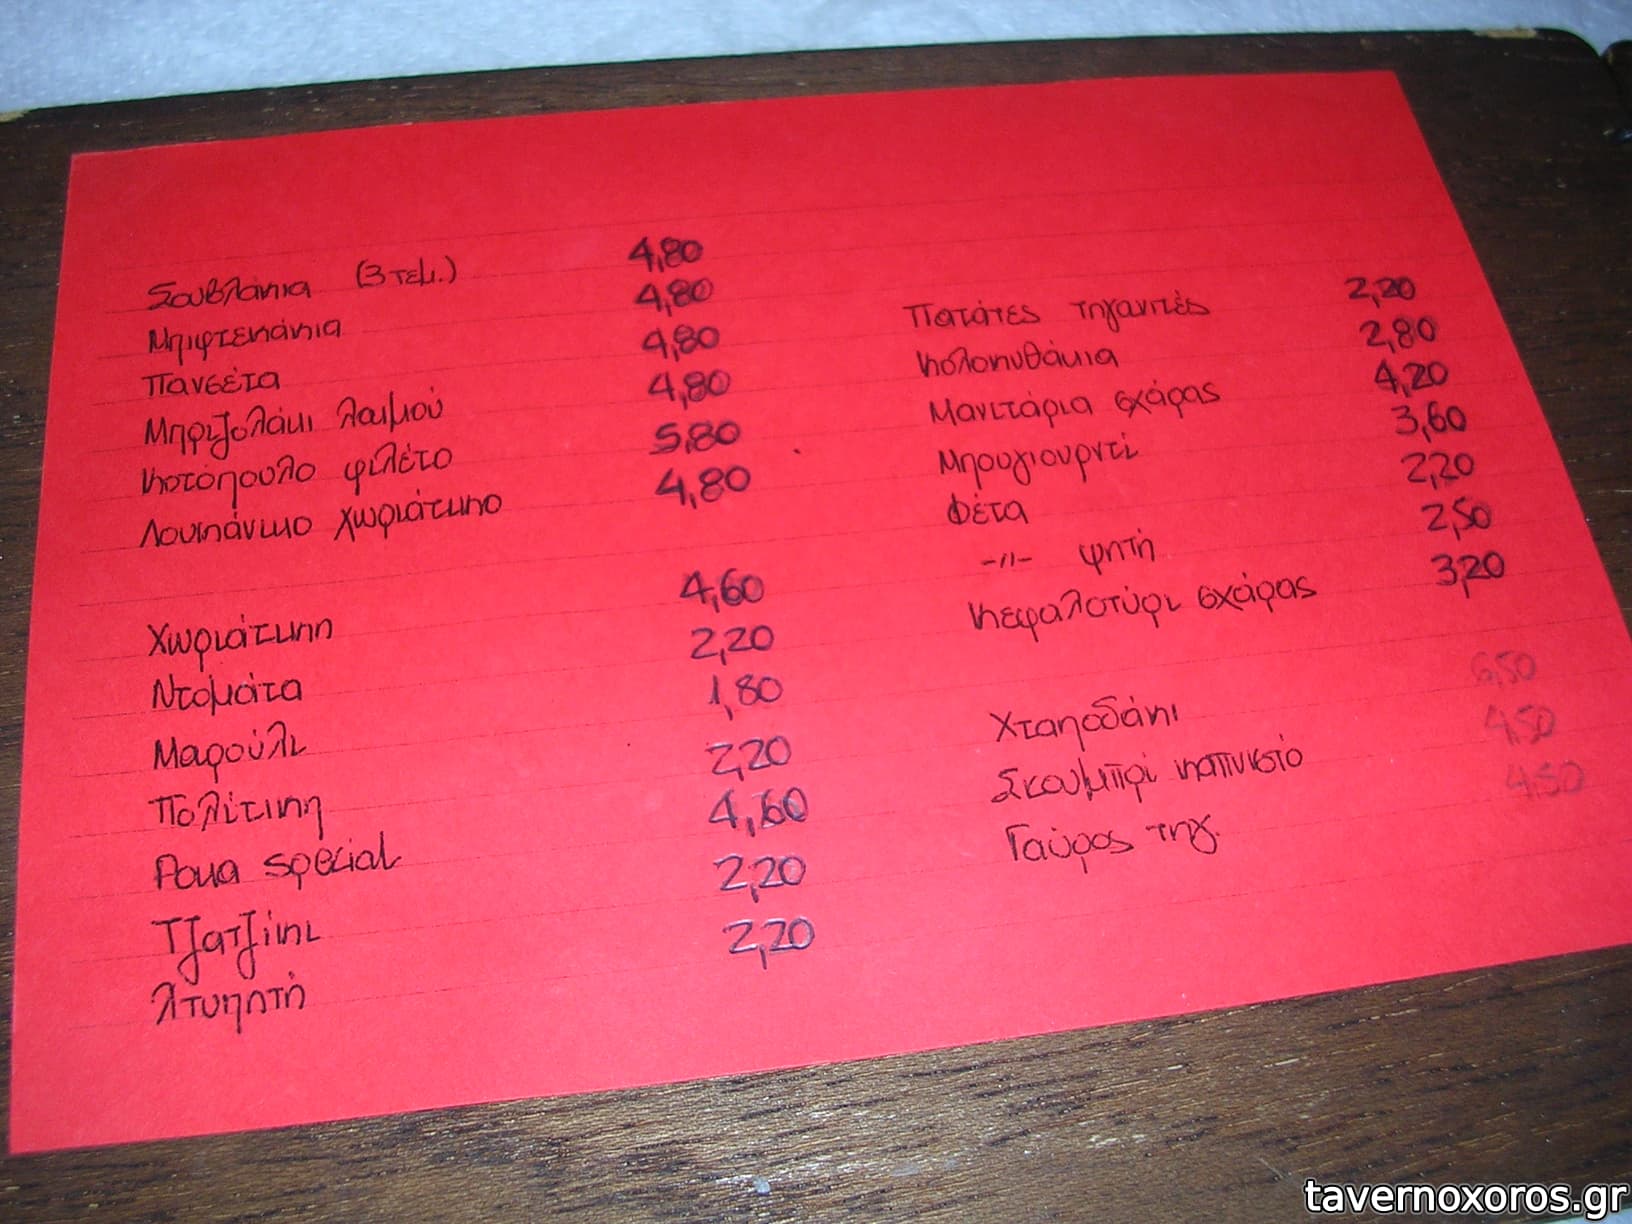 Σουβλάκια (3 τεμ.) 4,80
Μπιφτεκάκια 4,80
Πανσέτα 4,80
Μπριζολάκι λαιμού 4,80
Κοτόπουλο φιλέτο 5,80
Λουκάνικο χωριάτικο 4,80
Χωριάτικη 4,60
Ντομάτα 2,20
Μαρούλι 1,80
Πολίτικη 2,20
Ροκα special 4,60
Τζατζίκι 2,20
Χτυπητή 2,20
Πατάτες τηγανιτές 2,20
Κολοκυθάκια 2,80
Μανιτάρια σχάρας 4,20
Μπουγιουρντί 3,60
Φέτα 2,20
-〃- ψητή 2,50
Κεφαλοτύρι σχάρας 3,20
Χταποδάκι 6,50
Σκουμπρί καπνιστό 4,50
Γαύρος τηγ. 4,50
tavernoxoros.gr